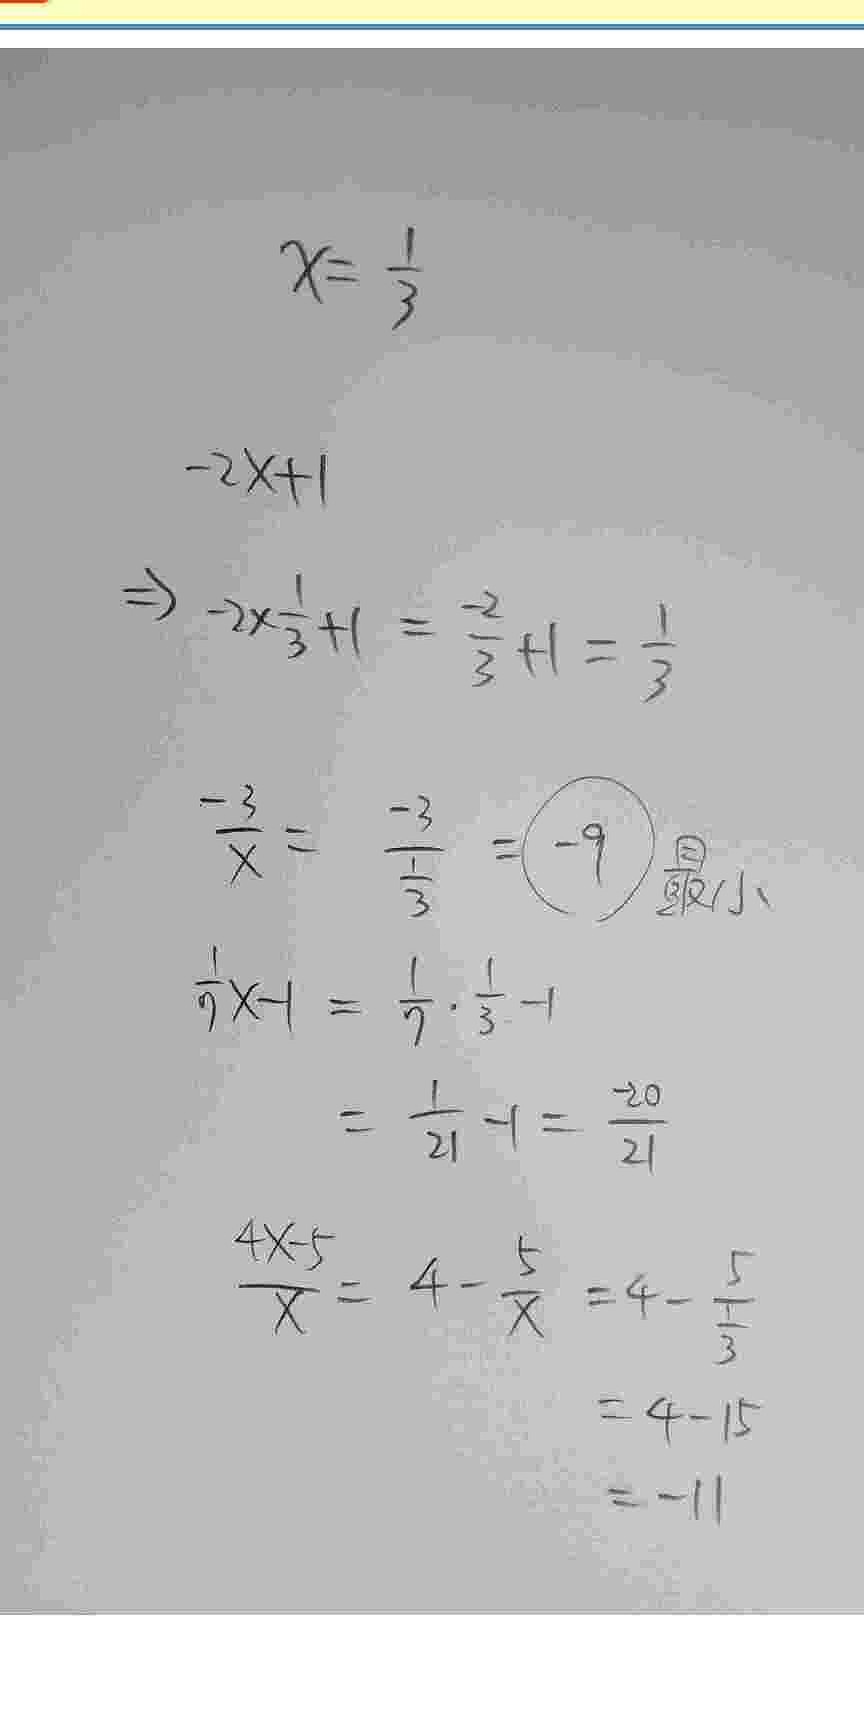 x = 1/3
-2x+1
⇒ -2×1/3+1 = -2/3+1 = 1/3
-3/x = -3/(1/3) = -9 最小
1/7x-1 = 1/7·1/3-1
= 1/21-1 = -20/21
4x-5/x = 4-5/x = 4-5/(1/3)
= 4-15
= -11